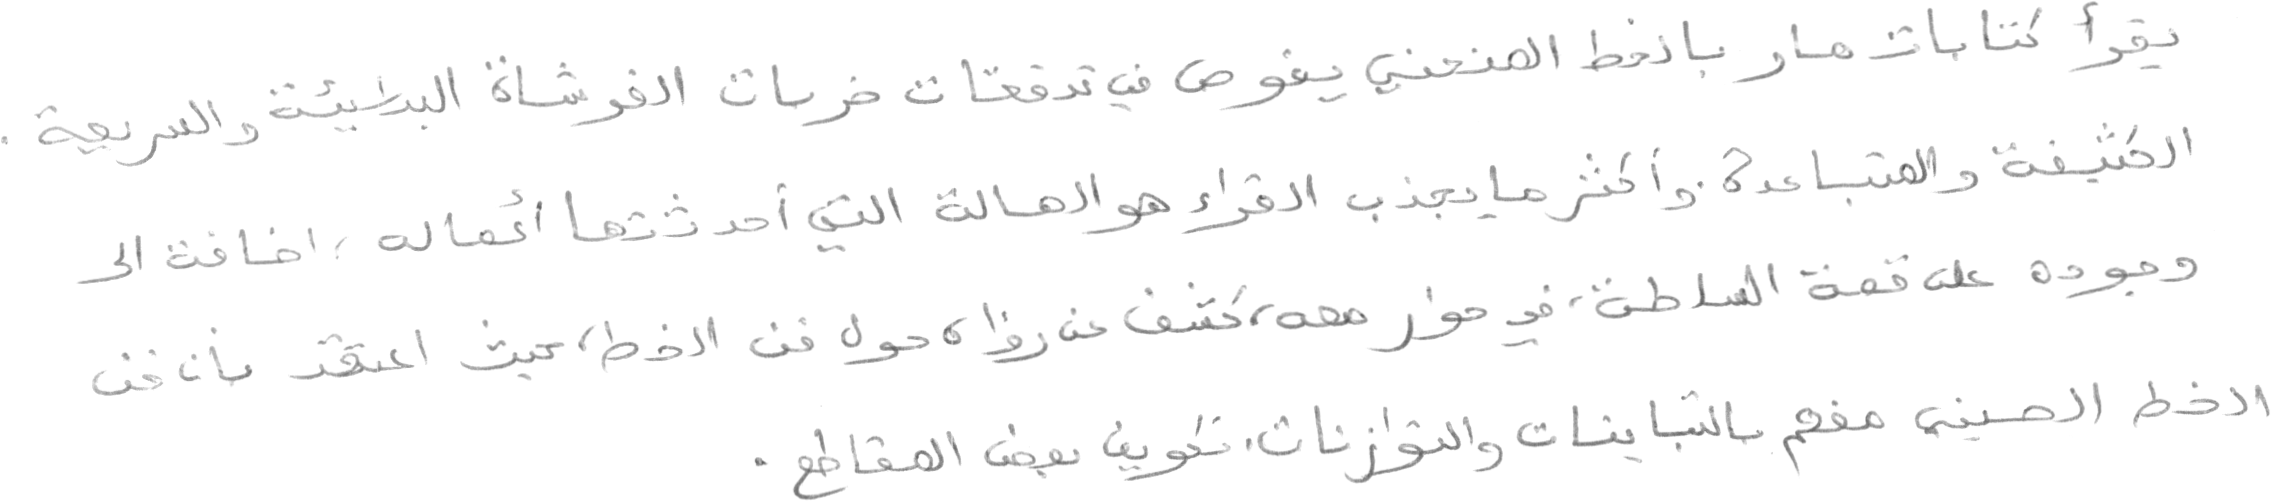 يقرأ كتابات مار بالخط المنحني يغوص في تدفقات ضربات الفرشاة البطيئة والسريعة .
الكثيفة والمتباعدة. وأكثر ما يجذب القراء هو الهالة التي أحدثتها أعماله، اضافة الى
وجوده على قمة السلطة، في حوار معه، كشف عن رؤاه حول فن الخط، حيث اعتقد بأن فن
الخط الصيني مفعم بالتباينات والتوازنات، تكوين بعض المقاطع .